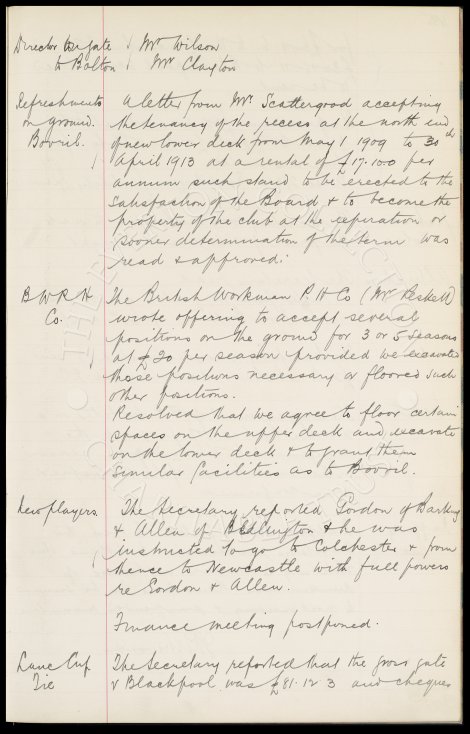 Director to gate } Mr Wilson
to Bolton } Mr Clayton
Refreshments on ground. Bovril.
A letter from Mr. Scattergood accepting
the tenancy of the recess at the north end
of new lower deck from May 1 1909 to 30th
April 1913 at a rental of £17.10.0 per
annum such stand to be erected to the
satisfaction of the Board & to become the
property of the club at the expiration or
sooner determination of the term was
read & approved.
B W P H Co.
The British Workman P. H Co (Mr Peskett)
wrote offering to accept several
positions on the ground for 3 or 5 seasons
at £20 per season provided we excavated
those positions necessary or floored such
other positions.
Resolved that we agree to floor certain
spaces on the upper deck and excavate
on the lower deck & to grant them
similar facilities as to Bovril.
New players.
The Secretary reported Gordon of Barking
& Allen of Bedlington & he was
instructed to go to Colchester & from
thence to Newcastle with full powers
re Gordon & Allen.
Finance meeting postponed.
Lanc Cup Tie
The Secretary reported that the gross gate
v Blackpool was £81.12.3 and cheque